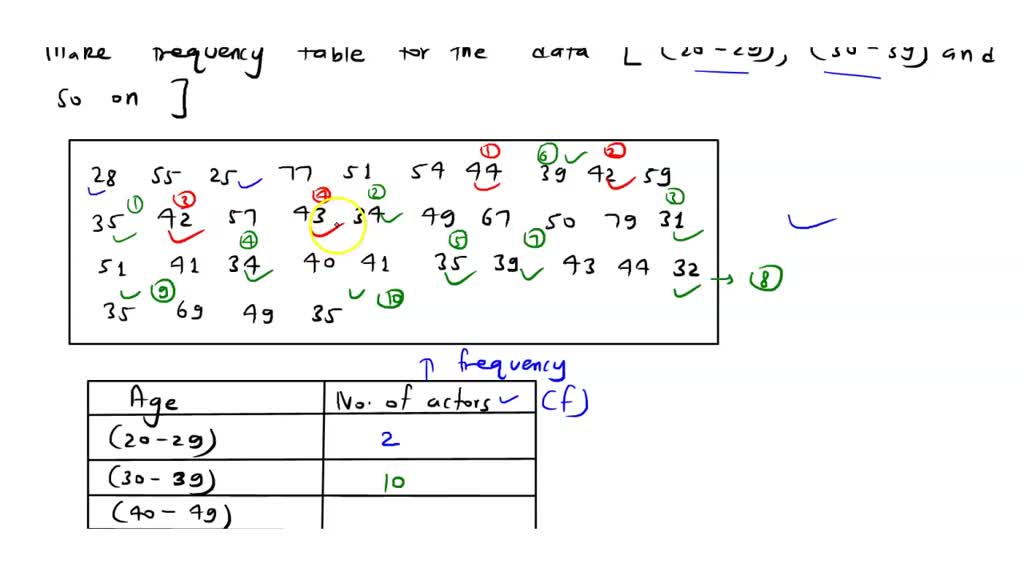 Make frequency table for the data [ (20-29), (30-39) and
so on ]
① ⑥ ②
28 55 25 77 51 54 44 39 42 59
① ③ ④ ② ③
35 42 57 43 34 49 67 50 79 31
④ ⑤ ⑦
51 41 34 40 41 35 39 43 44 32 → ⑧
⑨ ⑩
35 69 49 35
↑ frequency
Age No. of actors (f)
(20-29) 2
(30-39) 10
(40-49)